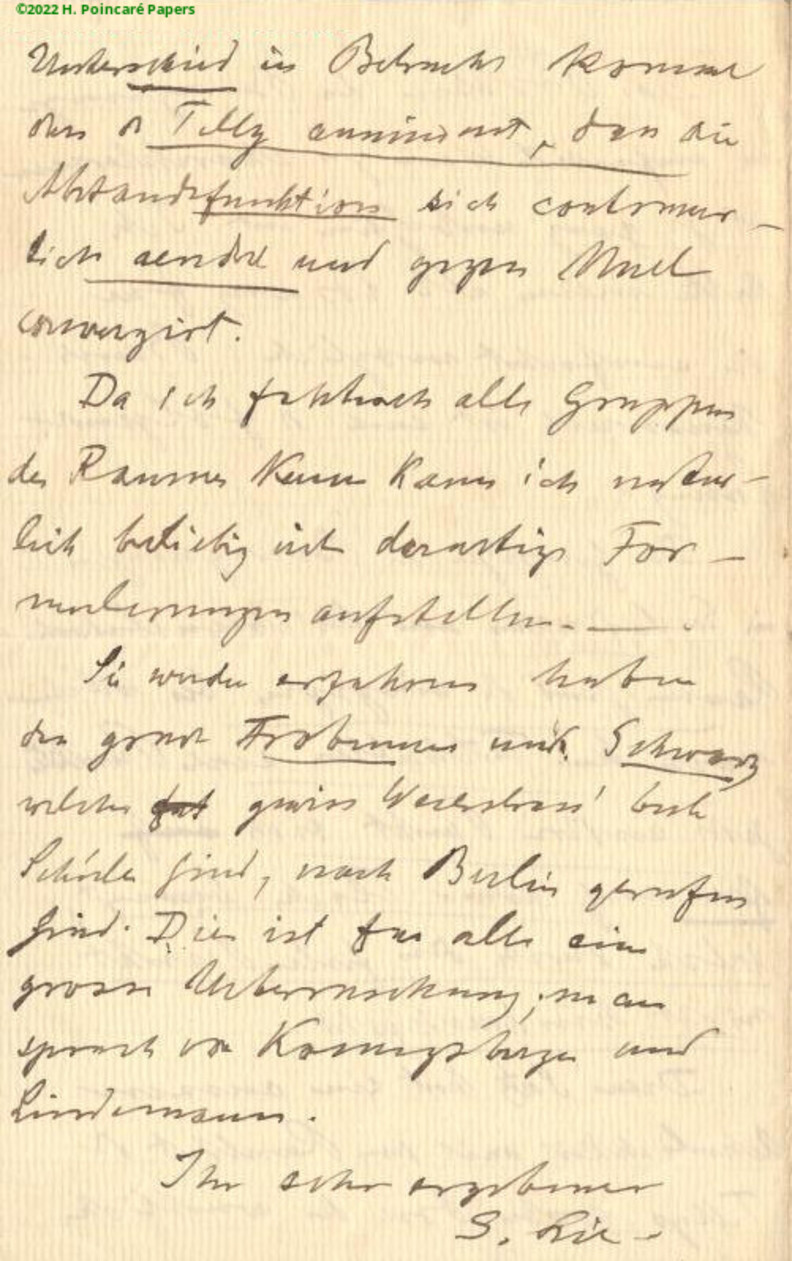 ©2022 H. Poincaré Papers
Unterschied in Betracht kommt
dass de Tilly annimmt, dass die
Abstandsfunktion sich continuir-
lich aendre und gegen Null
convergirt.
Da ich factisch alle Gruppen
des Raumes kenne kann ich natur-
lich beliebig viele derartige For-
mulierungen aufstellen. —
Sie werden erfahren haben
dass Frobenius und Schwarz
welche gewiss Weierstrass' beste
Schüler sind, nach Berlin gerufen
sind. Dies ist fur alle eine
grosse Ueberraschung; man
sprach von Koenigsberger und
Lindemann.
Ihr sehr ergebener
S. Lie